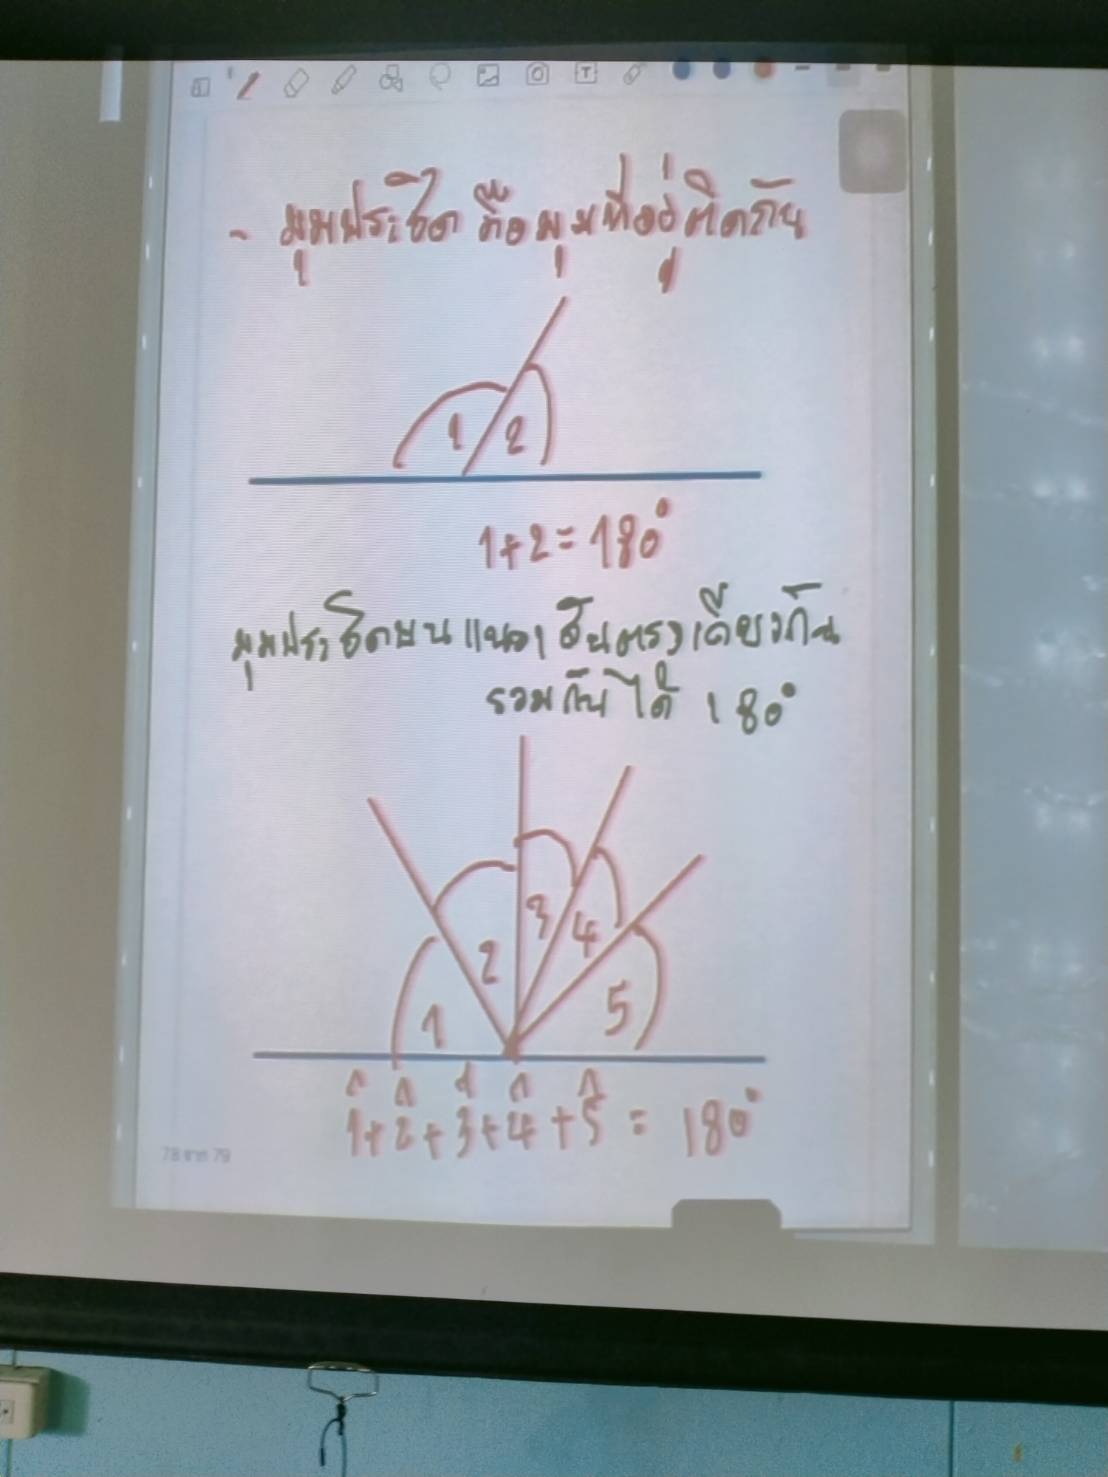 - มุมประชิด คือมุมที่อยู่ติดกัน
1 2
1+2=180°
มุมประชิดบนแนวเส้นตรงเดียวกัน
รวมกันได้ 180°
1 2 3 4 5
1̂+2̂+3̂+4̂+5̂ = 180°
78 จาก 79